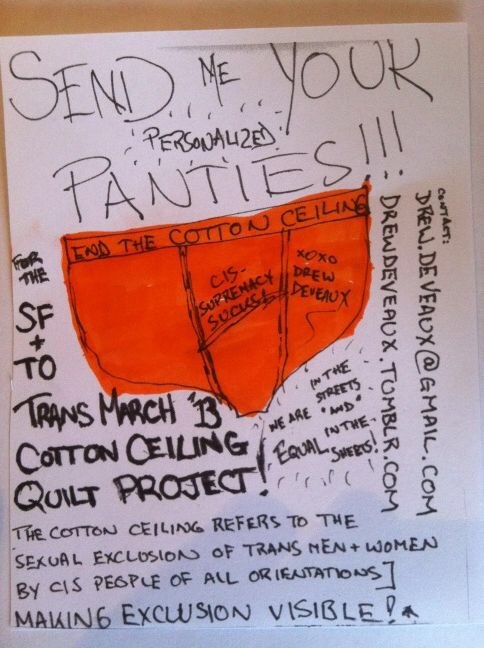 SEND ME YOUR
PERSONALIZED
PANTIES!!!
END THE COTTON CEILING
CIS-
SUPREMACY
SUCKS!
XOXO
DREW
DEVEAUX
CONTACT:
DREW.DEVEAUX@GMAIL.COM
DREWDEVEAUX.TUMBLR.COM
FOR
THE
SF
+
TO
TRANS MARCH '13
COTTON CEILING
QUILT PROJECT!
WE ARE
EQUAL
IN THE
STREETS
"AND"
IN THE
SHEETS!
THE COTTON CEILING REFERS TO THE
SEXUAL EXCLUSION OF TRANS MEN + WOMEN
BY CIS PEOPLE OF ALL ORIENTATIONS]
MAKING EXCLUSION VISIBLE!